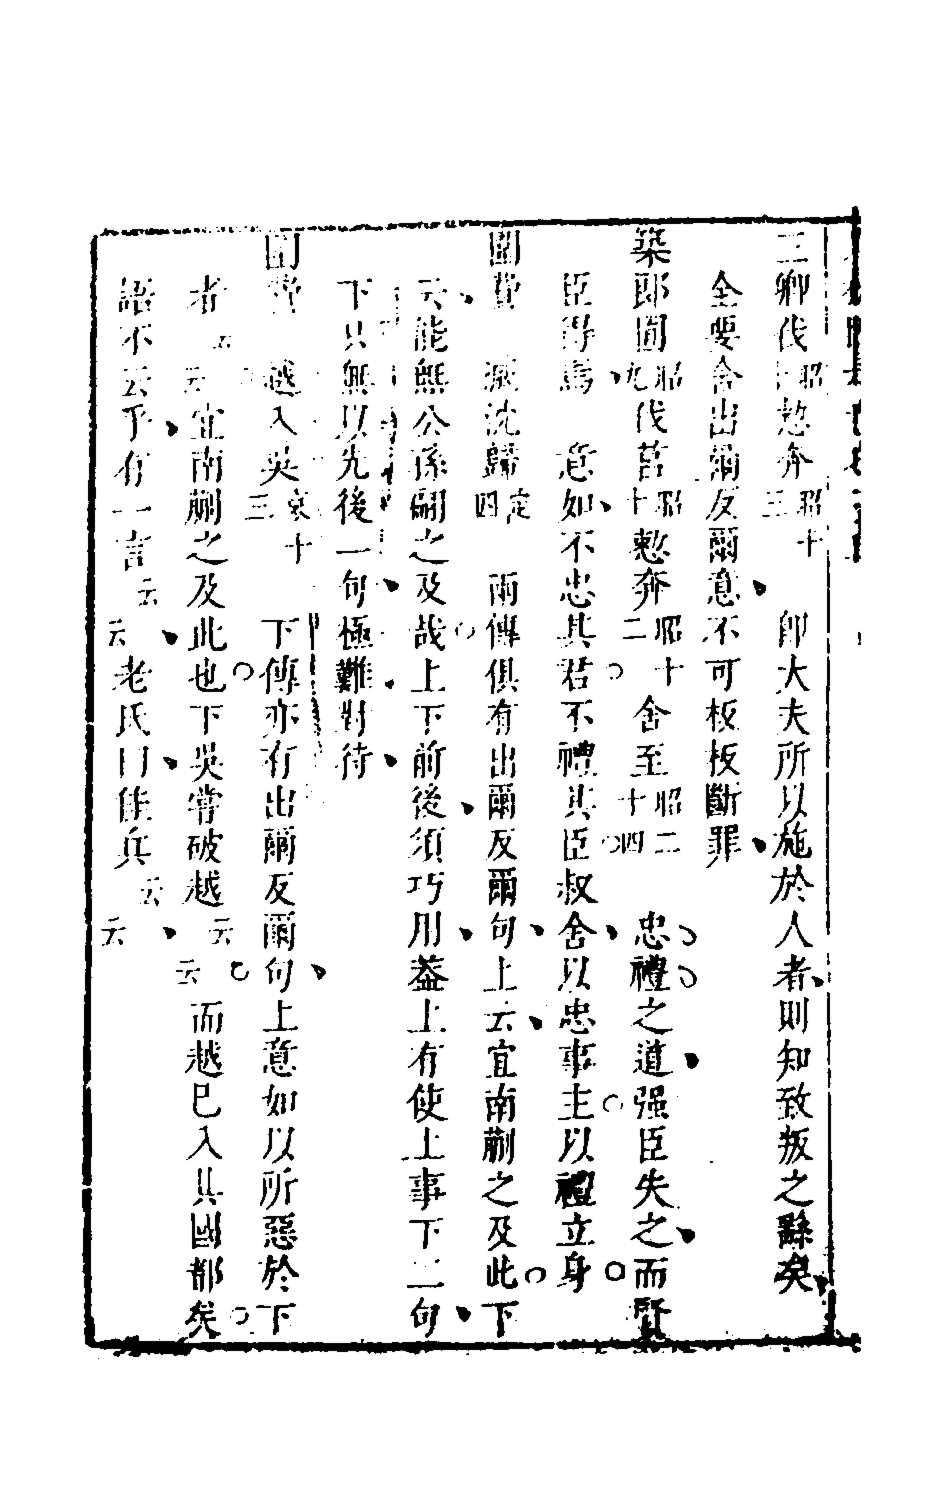 三卿伐昭慭奔昭十三　卽大夫所以施於人者則知致叛之繇矣
全要舍出爾反爾意不可板板斷罪
築郎囿昭九伐莒昭十慭奔昭十二舍至昭二十四　忠禮之道强臣失之而賢
臣得焉　意如不忠其君不禮其臣叔舍以忠事主以禮立身
圍費　滅沈歸定四　兩傳俱有出爾反爾句上云宜南蒯之及此下
云能無公孫翩之及哉上下前後須巧用葢上有使上事下二句
下只無以先後一句極難對待
圍費　越入吳哀十三　下傳亦有出爾反爾句上意如以所惡於下
者云云宜南蒯之及此也下吳嘗破越云云而越巳入其國都矣
語不云乎有一言云云老氏曰佳兵云云